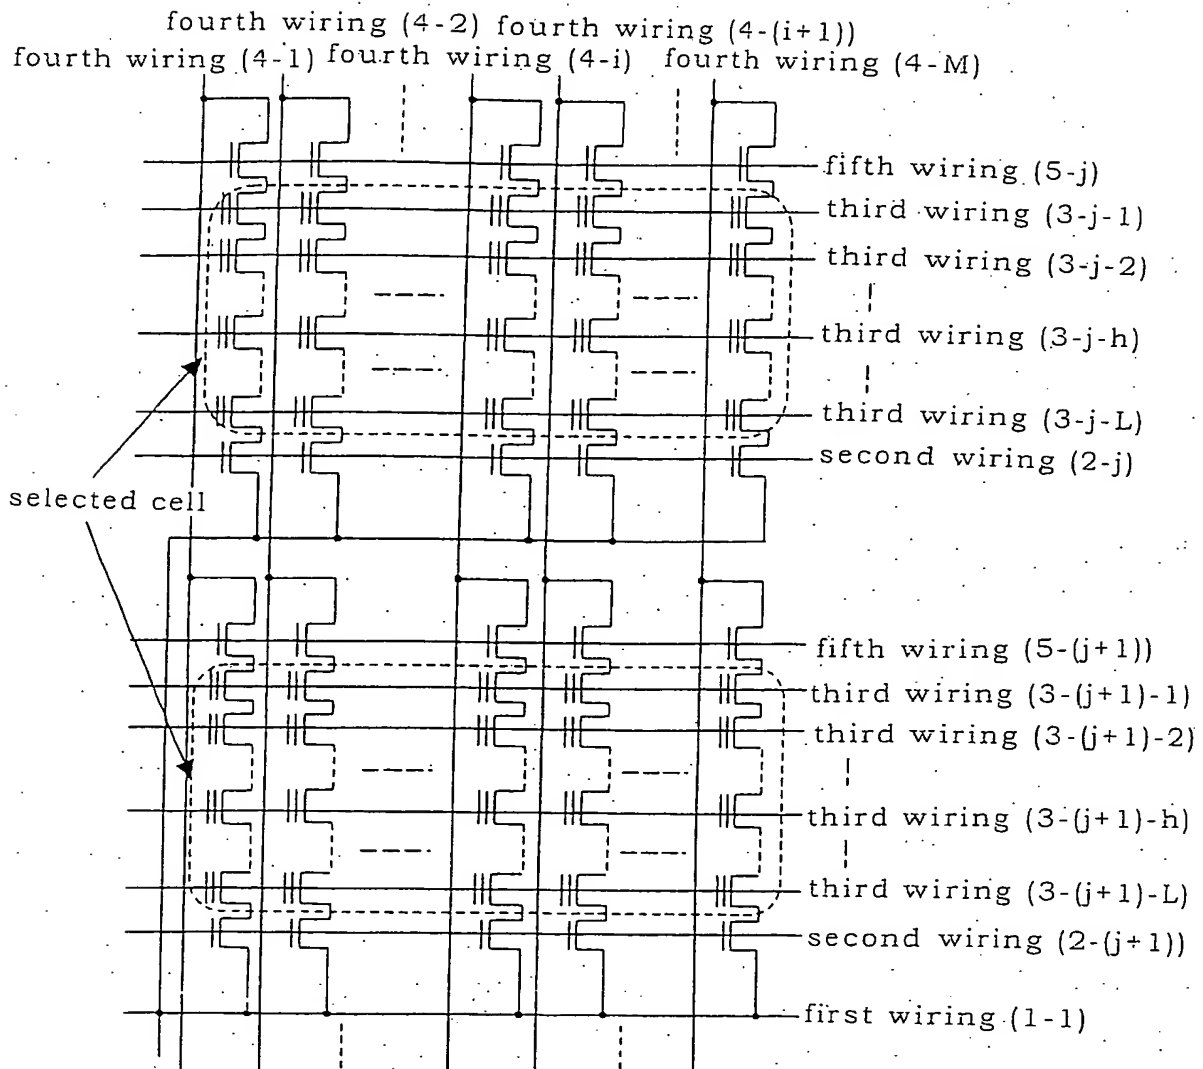 fourth wiring (4-2) fourth wiring (4-(i+1))
fourth wiring (4-1) fourth wiring (4-i) fourth wiring (4-M)
fifth wiring (5-j)
third wiring (3-j-1)
third wiring (3-j-2)
third wiring (3-j-h)
third wiring (3-j-L)
second wiring (2-j)
selected cell
fifth wiring (5-(j+1))
third wiring (3-(j+1)-1)
third wiring (3-(j+1)-2)
third wiring (3-(j+1)-h)
third wiring (3-(j+1)-L)
second wiring (2-(j+1))
first wiring (1-1)